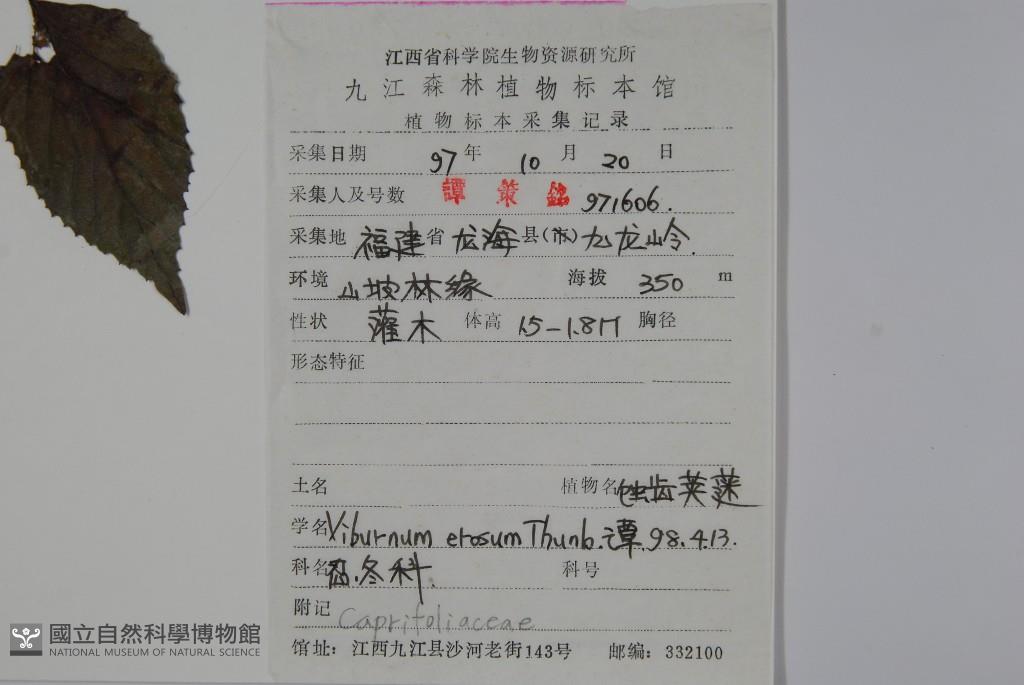 江西省科学院生物资源研究所
九江森林植物标本馆
植物标本采集记录
采集日期 97年 10月 20日
采集人及号数 譚策銘 971606.
采集地 福建省 龙海县(市) 九龙岭.
环境 山坡林缘 海拔 350 m
性状 灌木 体高 1.5-1.8m 胸径
形态特征
土名 植物名 蚀齿荚蒾
学名 Viburnum erosum Thunb. 谭. 98.4.13.
科名 忍冬科. 科号
附记 Caprifoliaceae
馆址：江西九江县沙河老街143号 邮编：332100
國立自然科學博物館
NATIONAL MUSEUM OF NATURAL SCIENCE